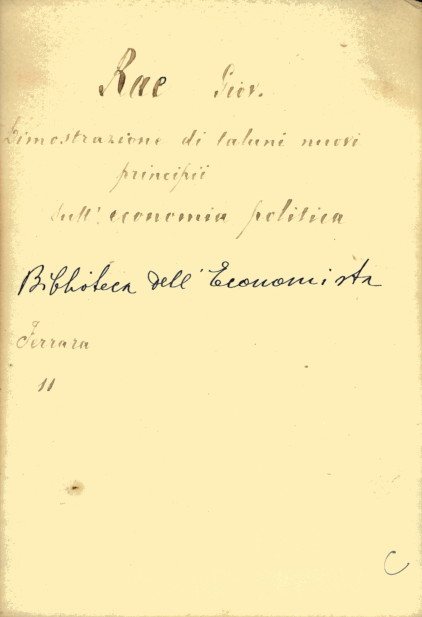 Rae Giov.
Dimostrazione di taluni nuovi
principii
sull'economia politica
Biblioteca dell'Economista
Ferrara
11
C